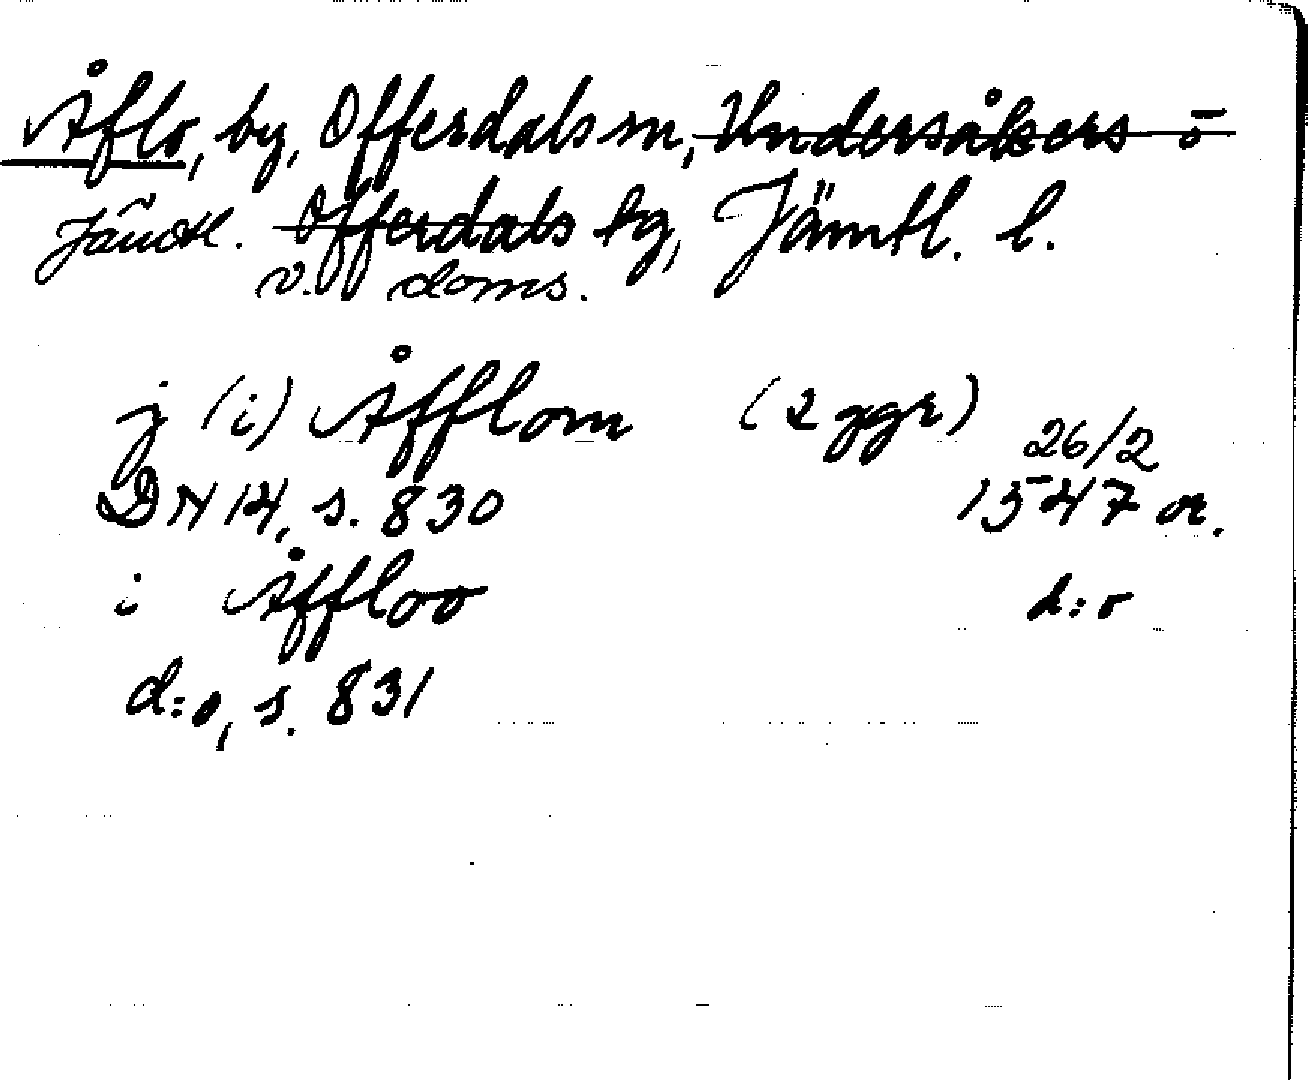 Åflo, by, Offerdals sn, Undersåkers o
Jämtl. Offerdals tg, Jämtl. l.
v. doms.
j (i) Åfflom (2 ggr) 26/2
DN 14, s. 830 1547 or.
i Åffloo d:o
d:o, s. 831